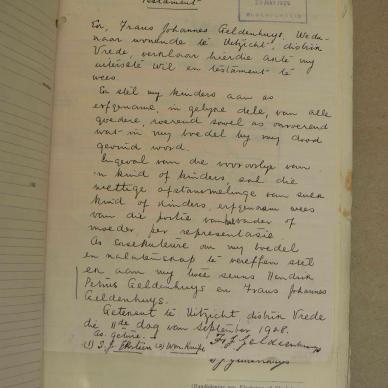 Testament
Ek, Frans Johannes Geldenhuys, Wedu-
naar wonende te Uitzicht, distrik
Vrede verklaar hierdie akte my
uiterste wil en testament te
wees.
Ek stel my kinders aan as
erfgename, in gelyke dele, van alle
goedere, roerend sowel as onroerend
wat in my boedel by my dood
gevind word.
Ingeval van die vooroorlye van
'n kind of kinders, sal die
wettige afstammelinge van sulk
kind of kinders, erfgenaam wees
van die portie van vader of
moeder per representasie
As Eksekuteure om my boedel
en nalatenskap te vereffen stel
ek aan my twee seuns Hendrik
Petrus Geldenhuys en Frans Johannes
Geldenhuys.
Geteken te Uitzicht, distrik Vrede
die 11de dag van September 1928.
As getuie. F J Geldenhuys
(1) S. J. Eksteen (2)